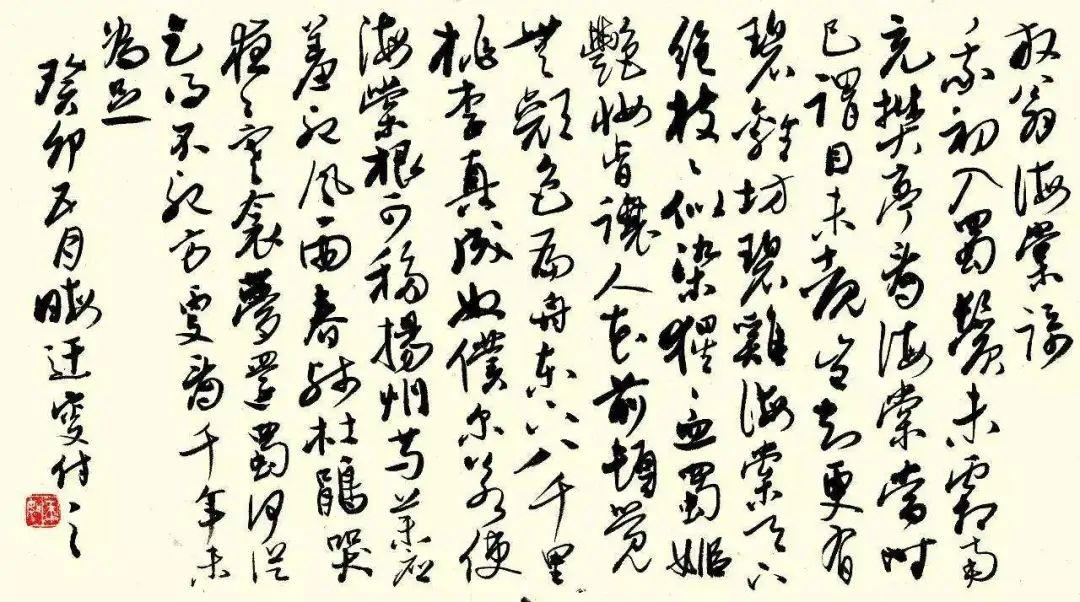 放翁海棠歌
我初入蜀鬢未霜南
充樊亭看海棠當時
已謂目未覩豈知更有
碧雞坊碧雞海棠天下
絕枝々似染猩々血蜀姬
艷妝肯讓人花前頓覺
無顏色扁舟東下八千里
桃李真成奴僕尔若使
海棠根可移揚州芍藥應
羞死風雨春殘杜鵑哭
夜々寒衾夢還蜀何從
乞得不死方更看千年未
為足
癸卯五月晦迂叟付